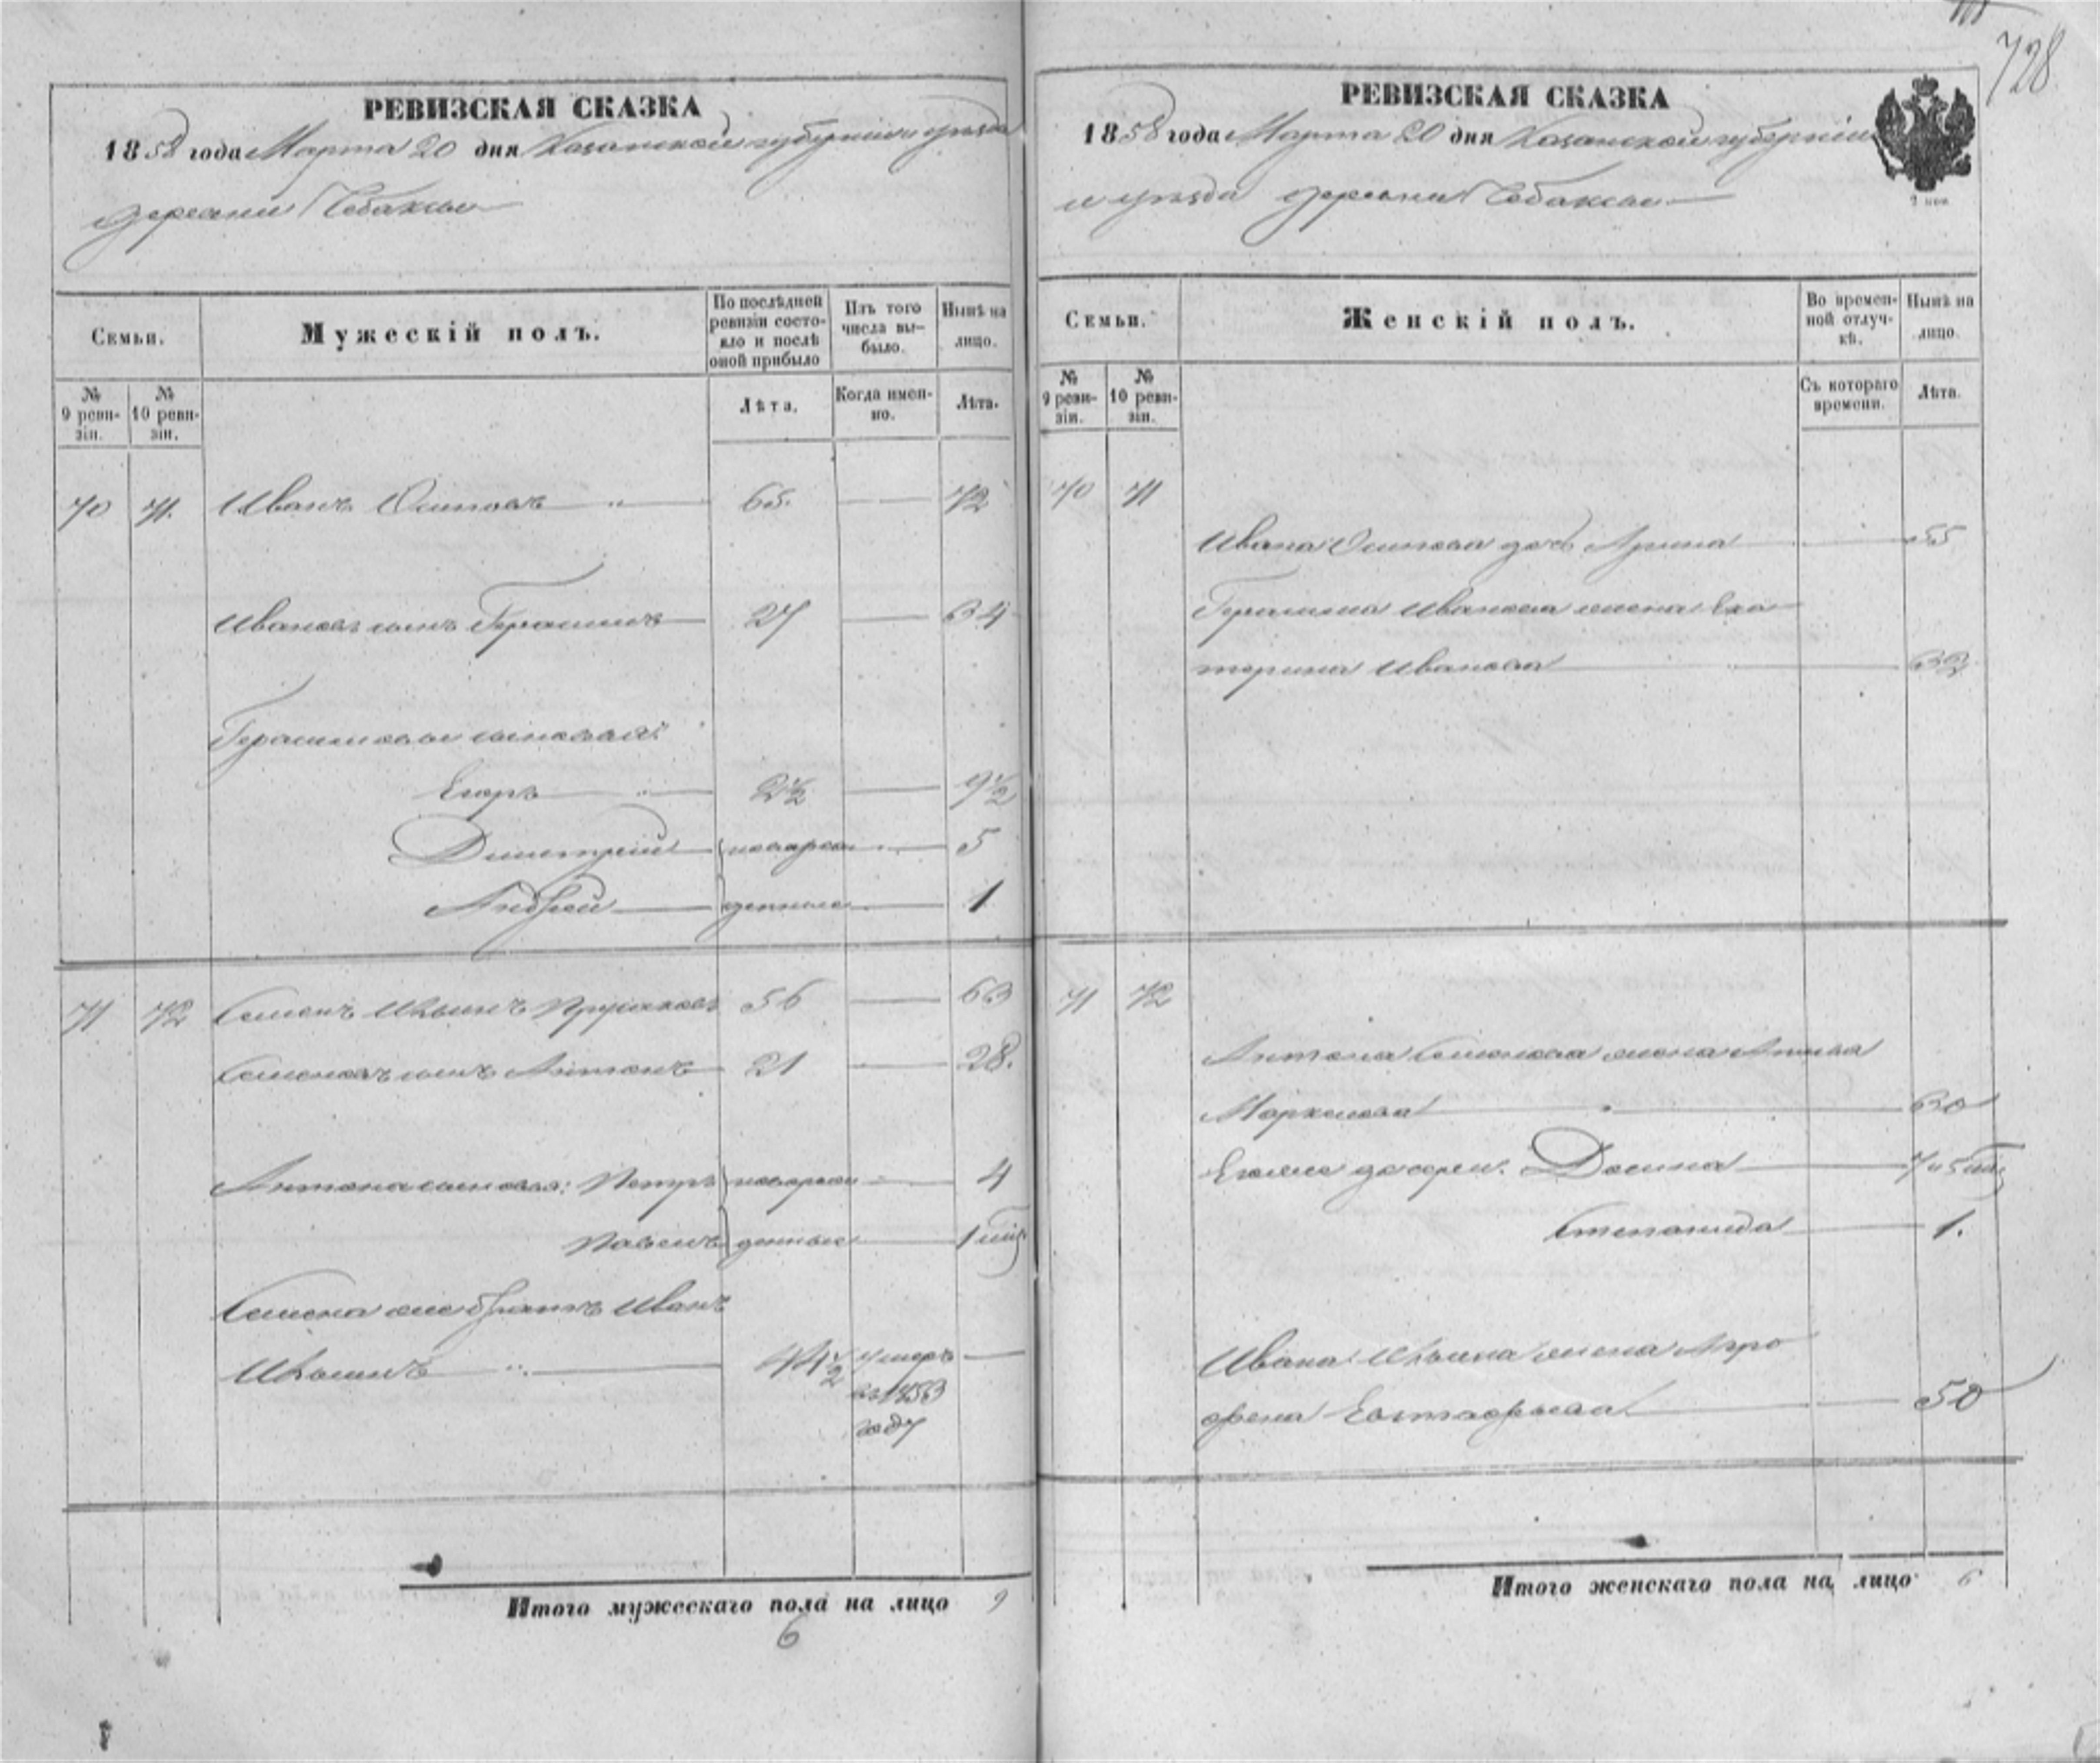 728
РЕВИЗСКАЯ СКАЗКА
1858 года Марта 20 дня Казанской губерніи и уѣзда
деревни Чебаксы
Семьи.
Мужескій полъ.
По послѣдней ревизіи состояло и послѣ оной прибыло
Изъ того числа выбыло.
Нынѣ на лицо.
№ 9 ревизіи.
№ 10 ревизіи.
Лѣта.
Когда именно.
Лѣта.
70 71. Иванъ Осиповъ 65. 72
Ивановъ сынъ Герасимъ 27 34
Герасимовы сыновья:
Егоръ 2½ 9½
Дмитрій новорож 5
Андрей денные 1
71 72 Семенъ Ильинъ 56 63
Семеновъ сынъ Антонъ 21 28.
Антона сыновья: Петръ новорож 4
Павелъ денные 1
Семена же братъ Иванъ
Ильинъ 44½ умеръ
въ 1853
году
Итого мужескаго пола на лицо 9
6
РЕВИЗСКАЯ СКАЗКА
1858 года Марта 20 дня Казанской губерніи
и уѣзда деревни Чебаксы
2 коп
Семьи.
Женскій полъ.
Во временной отлучкѣ.
Нынѣ на лицо.
№ 9 ревизіи.
№ 10 ревизіи.
Съ котораго времени.
Лѣта.
70 71
Ивана Осипова дочь Арина 55
Герасима Иванова жена Ека
терина Иванова 33
71 72
Антона Семенова жена
Маркелова 30
дочери. Домна
Степанида 1.
Ивана Ильина жена Агро
фена Евстафьева 50
Итого женскаго пола на лицо 6